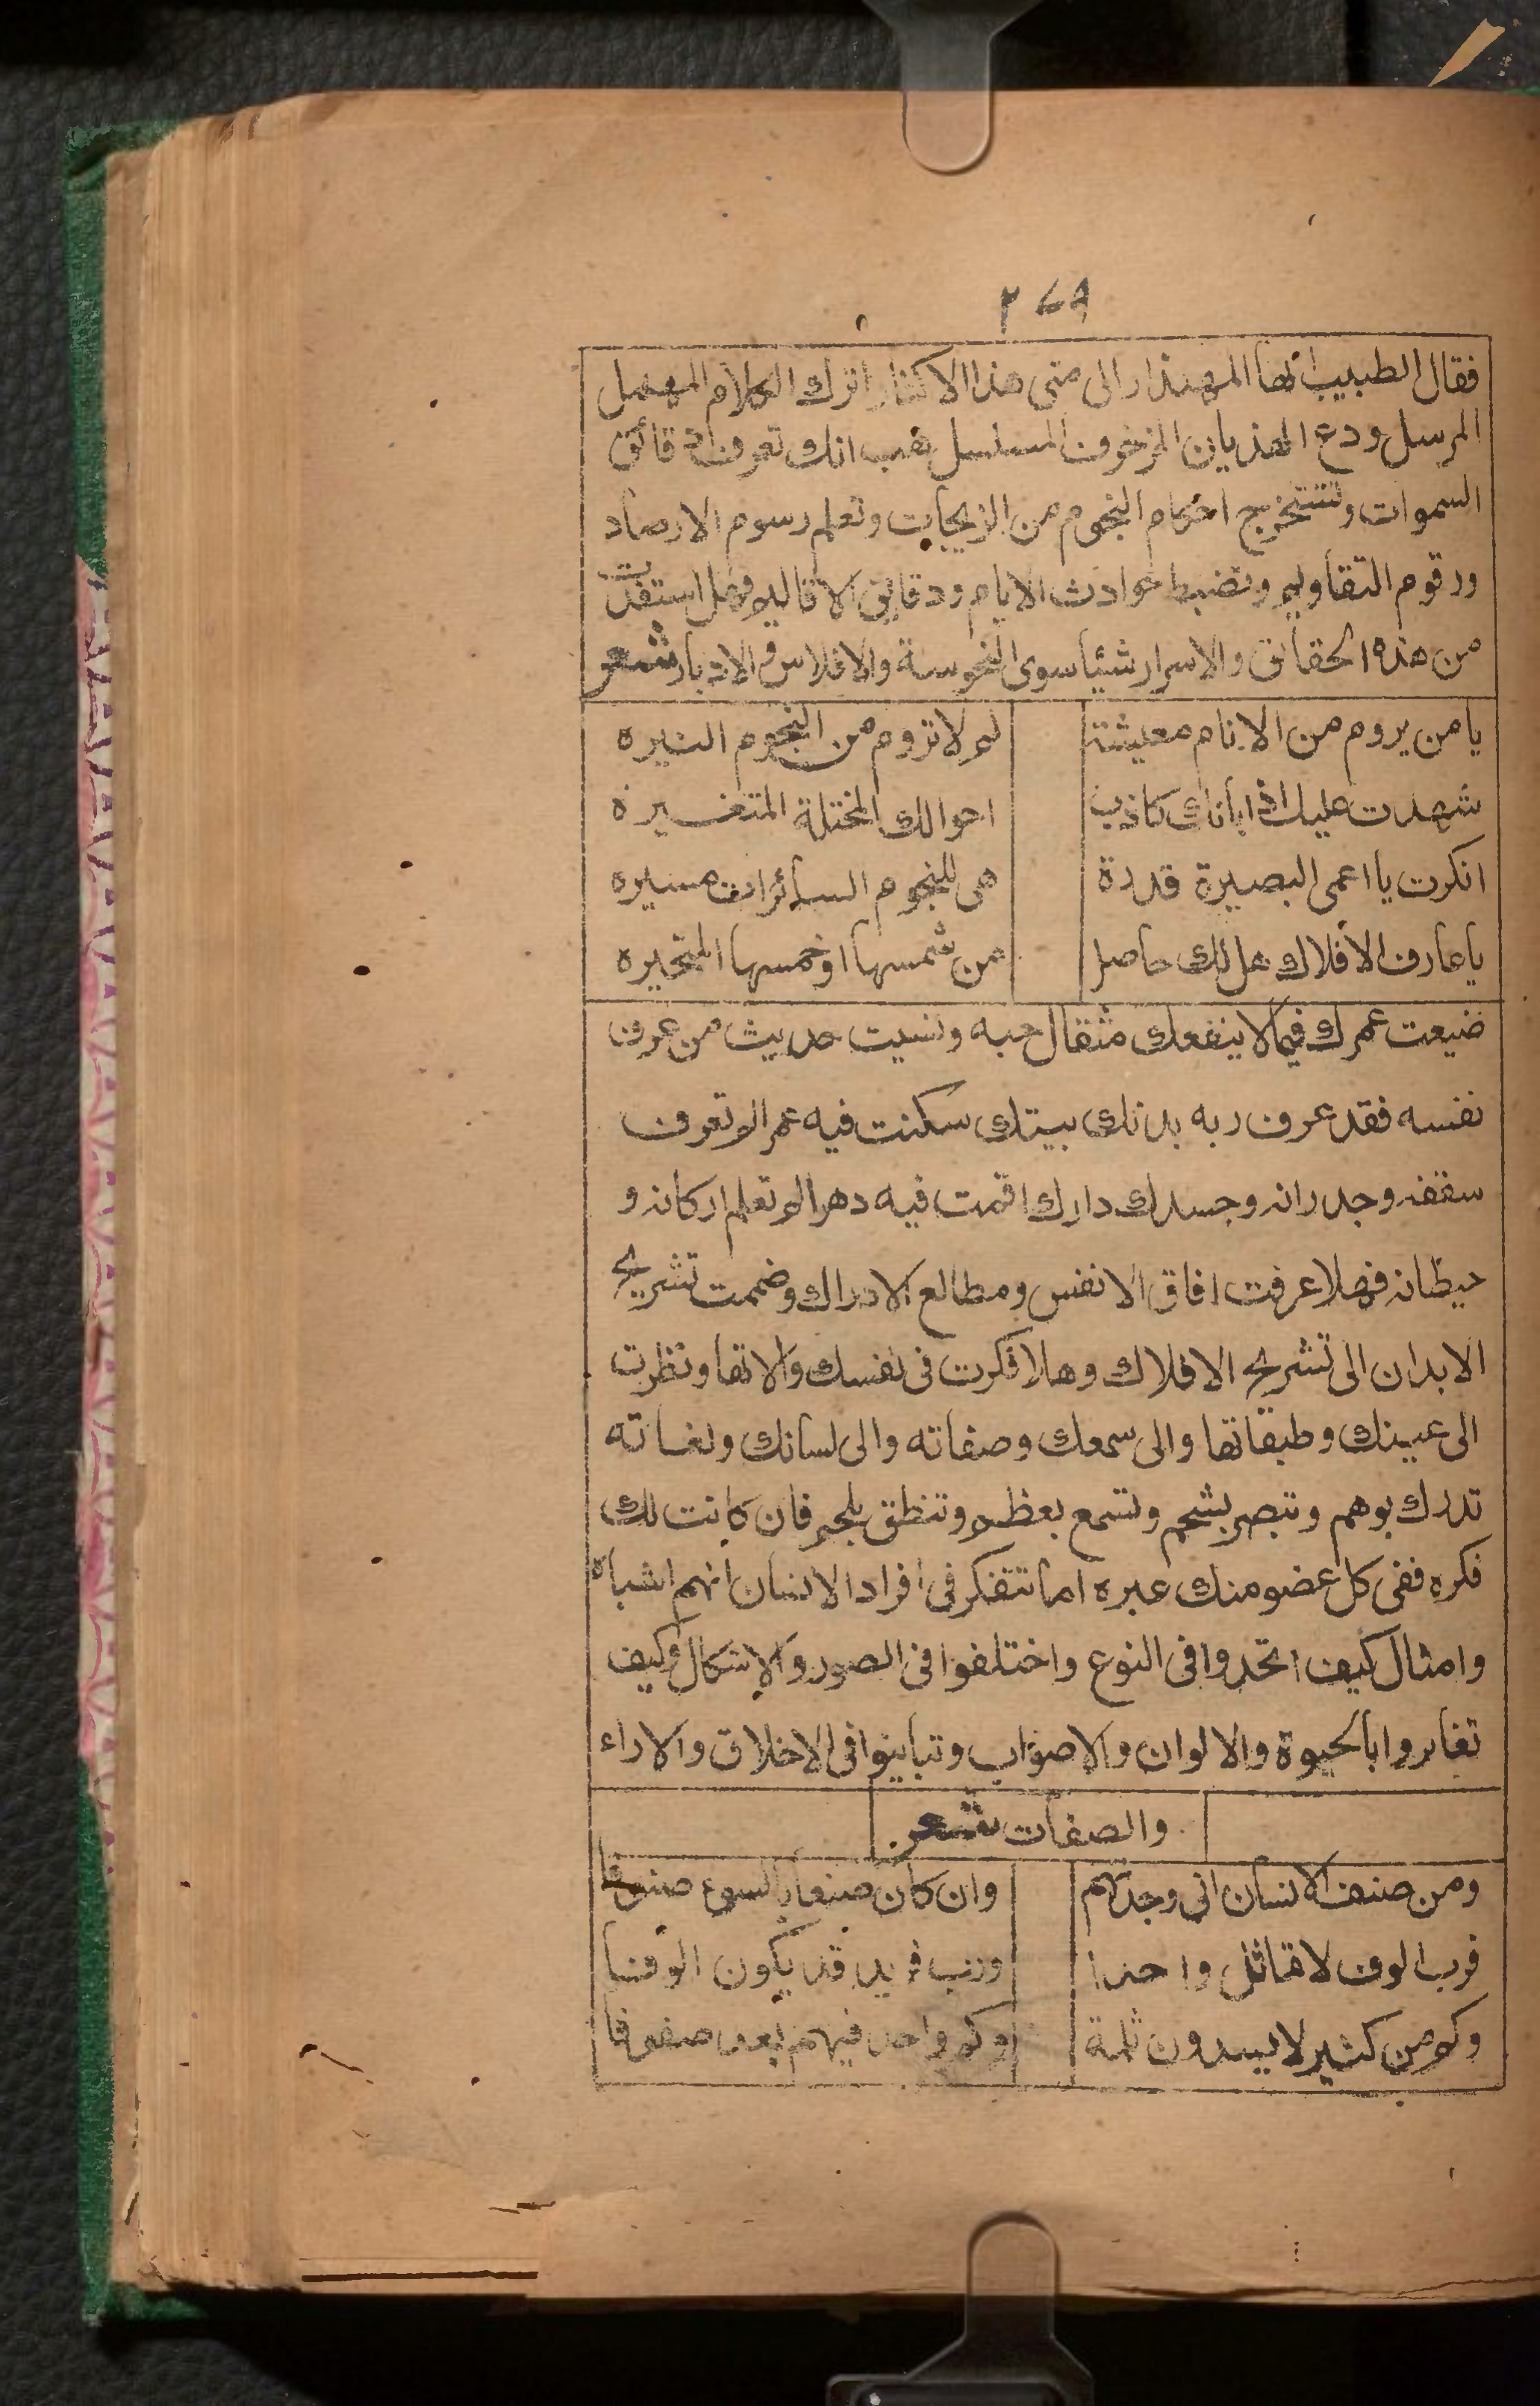 ٢٧٩
فقال الطبيب ايها المهذار الى متى هذا الاكثار اترك الكلام المهمل
المرسل ودع الهذيان المزخرف المسلسل هب انك تعرف دقائق
السموات وتستخرج احكام النجوم من الزيجات وتعلم رسوم الارصاد
ورقوم التقاويم وتضبط حوادث الايام ودقايق الاقاليم فهل استفدت
من هذه الحقائق والاسرار شيئا سوى النحوسة والافلاس والادبار شعر
يا من يروم من الانام معيشة لم لا تروم من النجوم النيره
شهدت عليك اذا بانك كاذب احوالك المختلة المتغيره
انكرت يا اعمى البصيرة قدرة هى للنجوم السائرات مسيره
يا عارف الافلاك هل لك حاصل من شمسها او خمسها المتحيره
ضيعت عمرك فيما لا ينفعك مثقال حبه ونسيت حديث من عرف
نفسه فقد عرف ربه بدنك بيتك سكنت فيه عمرا لم تعرف
سقفه وجدرانه وجسدك دارك اقمت فيه دهرا لم تعلم اركانه و
حيطانه فهلا عرفت افاق الانفس ومطالع الادراك وضممت تشريح
الابدان الى تشريح الافلاك وهلا فكرت فى نفسك والاتها ونظرت
الى عينك وطبقاتها والى سمعك وصفاته والى لسانك ولغاته
تدرك بوهم وتبصر بشحم وتسمع بعظم وتنطق بلحم فان كانت لك
فكره ففى كل عضو منك عبره اما تتفكر فى افراد الانسان انهم اشباه
وامثال كيف اتحدوا فى النوع واختلفوا فى الصور والاشكال وكيف
تغايروا بالحيوة والالوان والاصوات وتباينوا فى الاخلاق والاراء
والصفات شعر
ومن صنف الانسان انى وجدتهم وان كان صنفا بالسوع صنوفا
فرب الوف لا تماثل واحدا ورب فريد قد يكون الوفا
وكم من كثير لا يسدون ثلمة وكم واحد فيهم يعد صفوفا